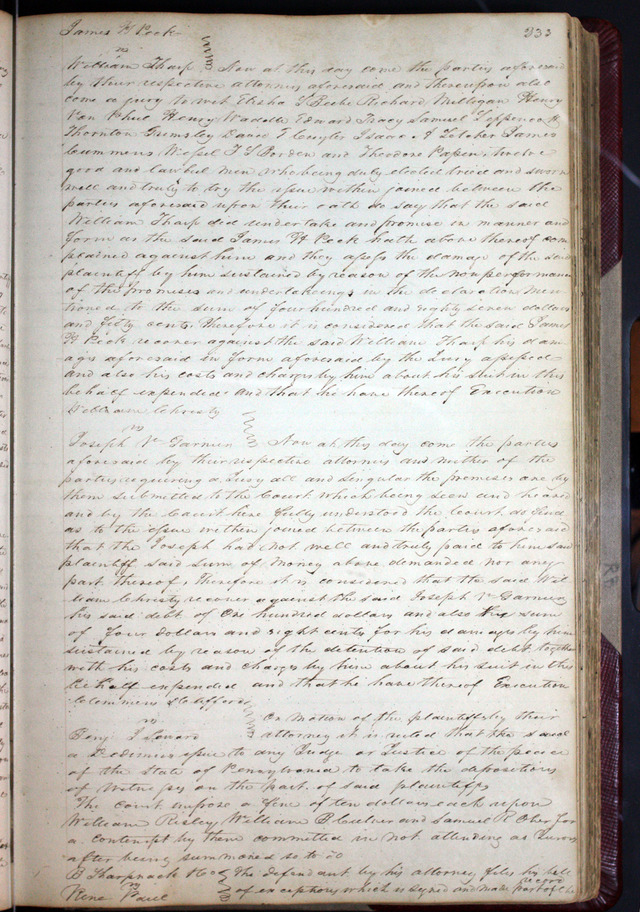 James H Peck 233
vs
William Tharp Now at this day come the parties aforesaid
by their respective attornies aforesaid and thereupon also
come a jury to wit Elisha Beebe Richard Milligan Henry
Van Henry Waddle Edward Tracy Samuel
Thornton Grimsley David T Cuyler Isaac A Letcher James
Cummens Wessel Borden and Theodore Papin twelve
good and lawful men who being duly elected tried and sworn
well and truly to try the issue within joined between the
parties aforesaid upon their oath do say that the said
William Tharp did undertake and promise in manner and
form as the said James H Peck hath above thereof com
plained against him and they assess the damage of the said
plaintiff by him sustained by reason of the non performance
of the Promises and undertakings in the declaration Men
tioned to the sum of four hundred and eighty seven dollars
and fifty cents therefore it is considered that the said James
H Peck recover against the said William Tharp his dam
ages aforesaid in form aforesaid by the Jury assessed
and also his costs and charges by him about his suit in this
behalf expended and that he have thereof Execution
William Christy
vs
Joseph V Garnier Now at this day come the parties
aforesaid by their respective attornies and neither of the
parties requiring a Jury all and singular the premises are by
them submitted to the Court which being seen and heard
and by the Court here fully understood the Court do find
as to the issue within joined between the parties aforesaid
that the Joseph had not well and truly paid to him said
plaintiff said sum of Money above demanded nor any
part thereof, Therefore it is considered that the said Wil
liam Christy recover against the said Joseph V Garnier
his said debt of One hundred dollars and also the sum
of four dollars and eight cents for his damages by him
sustained by reason of the detention of said debt together
with his costs and charges by him about his suit in this
behalf expended and that he have thereof Execution
Clemmens & Clifford
vs On Motion of the plaintiffs by their
Benj attorney it is ruled that the said
a Dedimus issue to any Judge or Justice of the peace
of the State of Pennsylvania to take the depositions
of Witnesses on the part of said plaintiffs
The court impose a fine of ten dollars each upon
William Risley William B Culver and Samuel R Ober for
a contempt by them committed in not attending as Jurors
after being summoned so to do
B Tharp The defendant by his attorney files his bill
vs record
Rene Paul of exceptions which is signed and made part of the